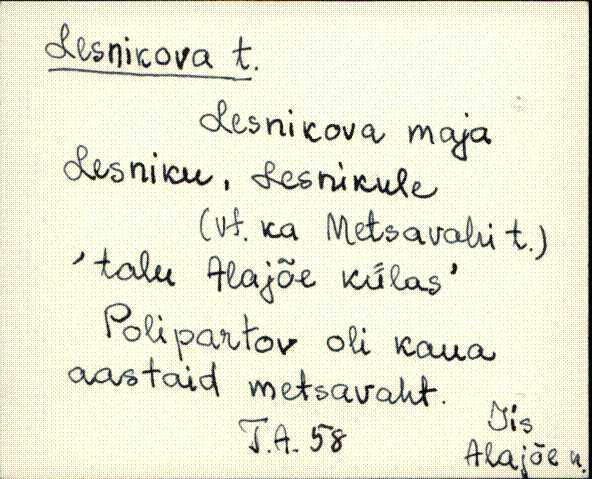 Lesnikova t.
Lesnikova maja
Lesniku, Lesnikule
(vt. ka Metsavahi t.)
'talu Alajõe külas'
Polipartov oli kaua
aastaid metsavaht.
T.A. 58
Iis
Alajõe k.